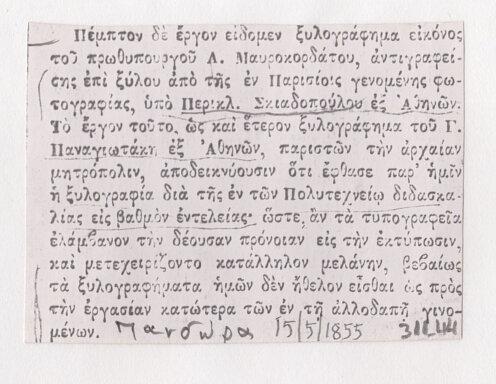 Πέμπτον δὲ ἔργον εἴδομεν ξυλογράφημα εἰκόνος
τοῦ πρωθυπουργοῦ Α. Μαυροκορδάτου, ἀντιγραφεί-
σης ἐπὶ ξύλου ἀπὸ τῆς ἐν Παρισίοις γενομένης φω-
τογραφίας, ὑπὸ Περικλ. Σκιαδοπούλου ἐξ Ἀθηνῶν.
Τὸ ἔργον τοῦτο, ὡς καὶ ἕτερον ξυλογράφημα τοῦ Γ.
Παναγιωτάκη ἐξ Ἀθηνῶν, παριστῶν τὴν ἀρχαίαν
μητρόπολιν, ἀποδεικνύουσιν ὅτι ἔφθασε παρ' ἡμῖν
ἡ ξυλογραφία διὰ τῆς ἐν τῶν Πολυτεχνείῳ διδασκα-
λίας εἰς βαθμὸν ἐντελείας· ὥστε, ἂν τὰ τυπογραφεῖα
ἐλάμβανον τὴν δέουσαν πρόνοιαν εἰς τὴν ἐκτύπωσιν,
καὶ μετεχειρίζοντο κατάλληλον μελάνην, βεβαίως
τὰ ξυλογραφήματα ἡμῶν δὲν ἤθελον εἶσθαι ὡς πρὸς
τὴν ἐργασίαν κατώτερα τῶν ἐν τῇ ἀλλοδαπῇ γινο-
μένων. Πανδώρα 15/5/1855